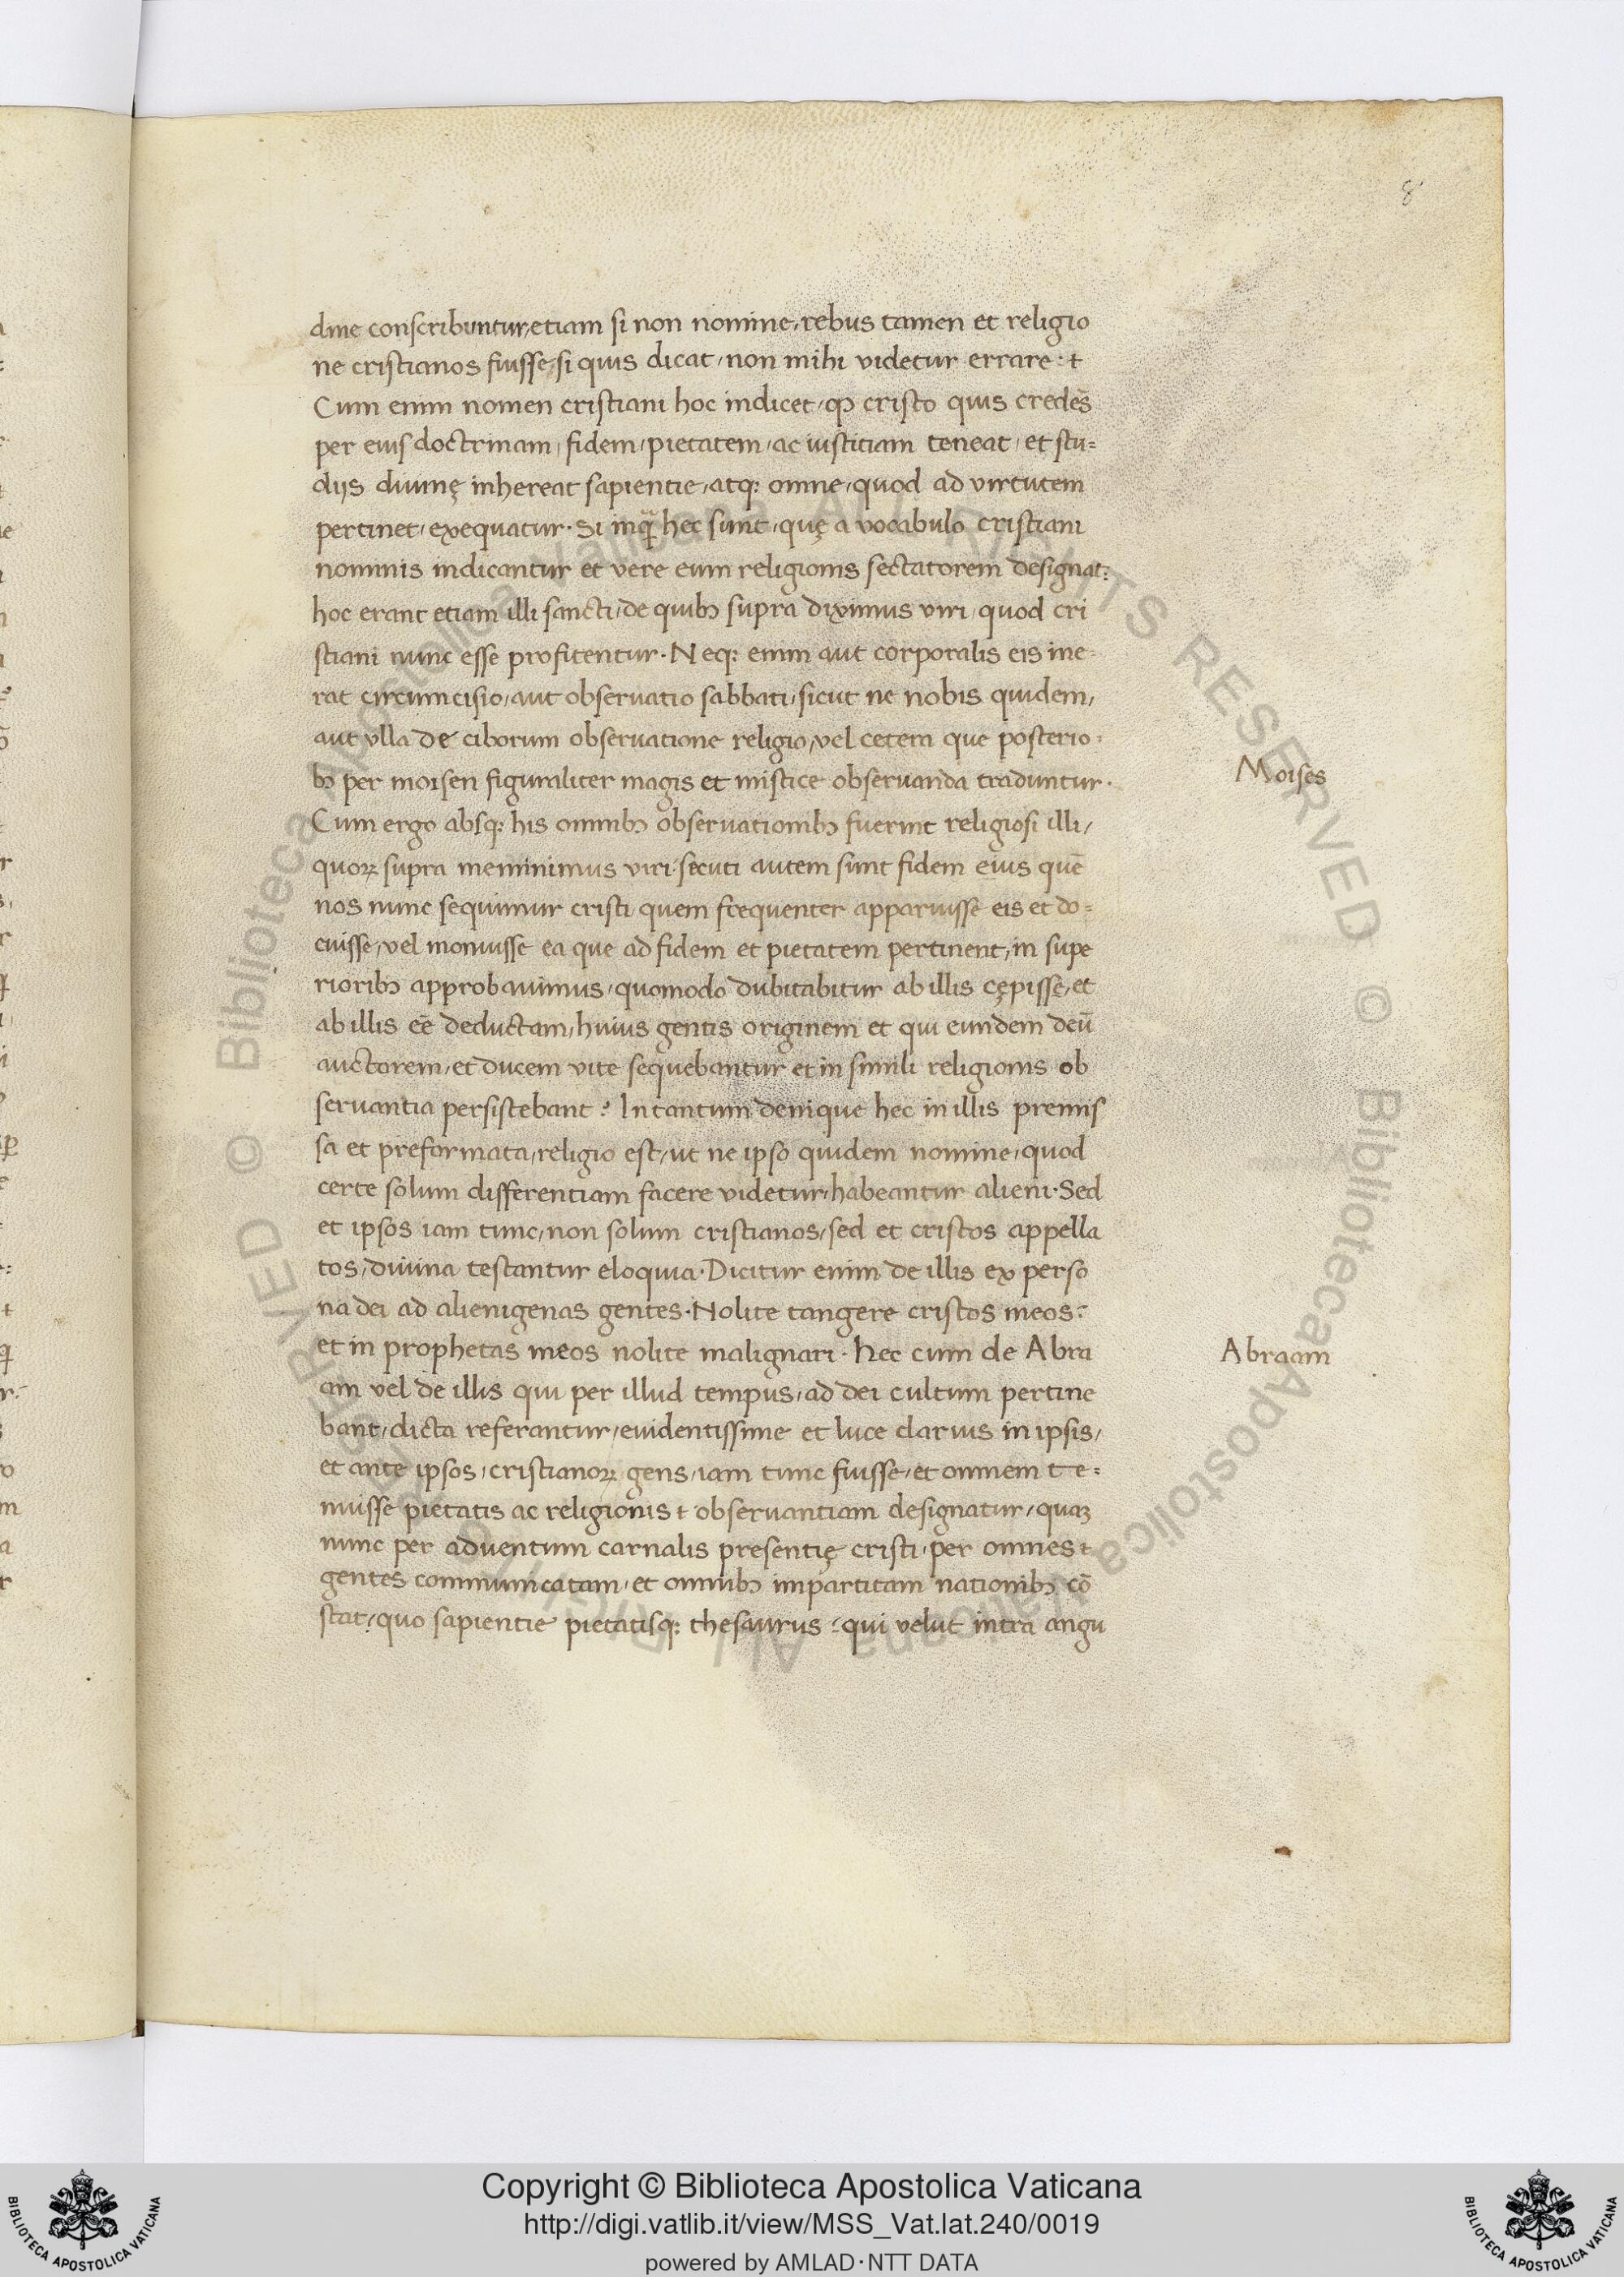 8
dine conscribuntur, etiam si non nomine, rebus tamen et religio
ne cristianos fuisse, si quis dicat, non mihi videtur errare. &
Cum enim nomen cristiani hoc indicet, qp cristo quis credēs
per eius doctrinam, fidem, pietatem, ac iustitiam teneat, et stu=
diis diuinę inhereat sapientie, atq; omne, quod ad virtutem
pertinet, exequatur. Si inqͣ hec sunt, quę a vocabulo cristiani
nominis indicantur et vere eum religionis sectatorem designat:
hoc erant etiam illi sancti, de quibꝫ supra diximus viri, quod cri
stiani nunc esse profitentur. Neq; enim aut corporalis eis ine=
rat circumcisio, aut obseruatio sabbati, sicut ne nobis quidem,
aut vlla de ciborum obseruatione religio, vel cetera que posterio=
bꝫ per moisen figuraliter magis et mistice obseruanda traduntur.
Moises
Cum ergo absq; his omnibꝫ obseruationibꝫ fuerint religiosi illi,
quoꝝ supra meminimus viri. secuti autem sunt fidem eius quē
nos nunc sequimur cristi quem frequenter apparuisse eis et do=
cuisse, vel monuisse ea que ad fidem et pietatem pertinent, in supe
rioribꝫ approbauimus, quomodo dubitabitur ab illis cępisse, et
ab illis eē deductam, huius gentis originem et qui eundem deū
auctorem, et ducem vite sequebantur et in simili religionis ob
seruantia persistebant? In tantum denique hec in illis premis
sa et preformata, religio est, ut ne ipso quidem nomine, quod
certe solum differentiam facere videtur, habeantur alieni. Sed
et ipsos iam tunc, non solum cristianos, sed et cristos appella
tos, diuina testantur eloquia. Dicitur enim de illis ex perso
na dei ad alienigenas gentes. Nolite tangere cristos meos:
et in prophetas meos nolite malignari. Hec cum de Abra
Abraam
am vel de illis qui per illud tempus, ad dei cultum pertine
bant, dicta referantur, euidentissime et luce clarius in ipsis,
et ante ipsos, cristianoꝝ gens, iam tunc fuisse, et omnem te=
nuisse pietatis ac religionis & obseruantiam designatur, quaꝫ
nunc per aduentum carnalis presentię cristi, per omnes &
gentes communicatam, et omnibꝫ impartitam nationibꝫ cō
stat, quo sapientie pietatisq; thesaurus: qui velut intra angu
Copyright © Biblioteca Apostolica Vaticana
http://digi.vatlib.it/view/MSS_Vat.lat.240/0019
powered by AMLAD·NTT DATA
BIBLIOTECA APOSTOLICA VATICANA
BIBLIOTECA APOSTOLICA VATICANA